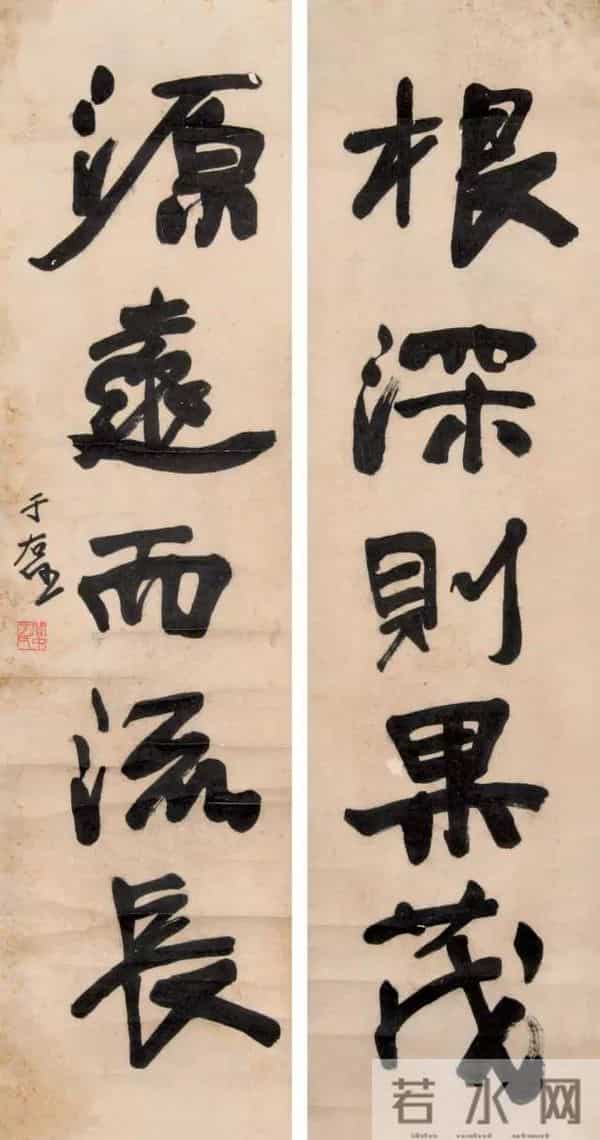 根深則果茂
源遠而流長
于右任
若水网